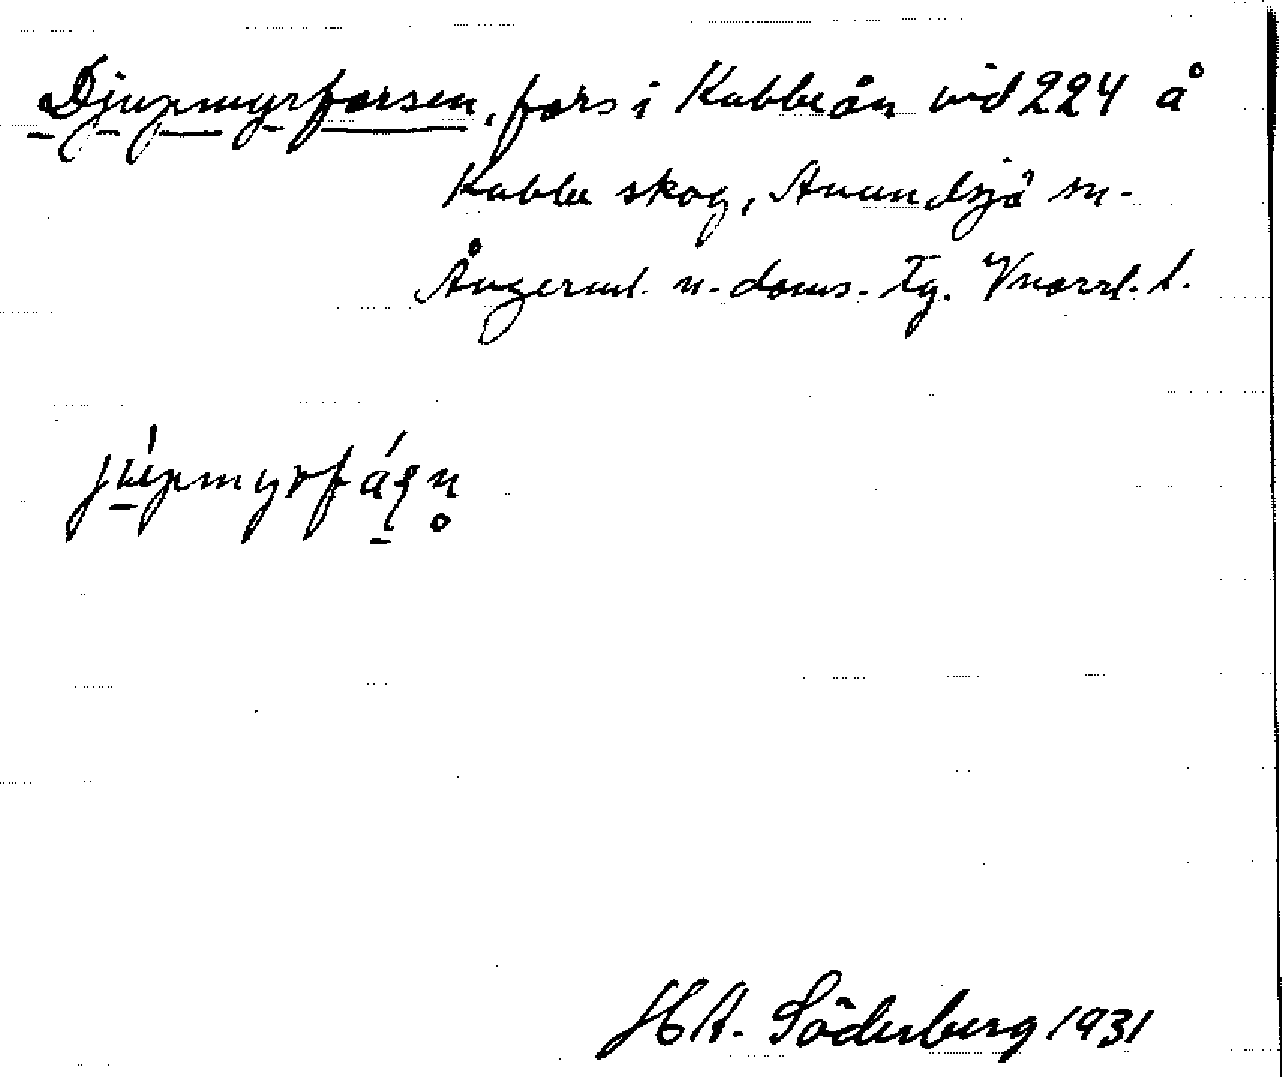 Djupmyrforsen, fors i Kubbeån vid 224 å
Kubbe skog, Anundsjö sn.
Ångerml. n. doms. tg. Vnorrl. l.
júpmyrfáşn̥
H A. Söderberg 1931